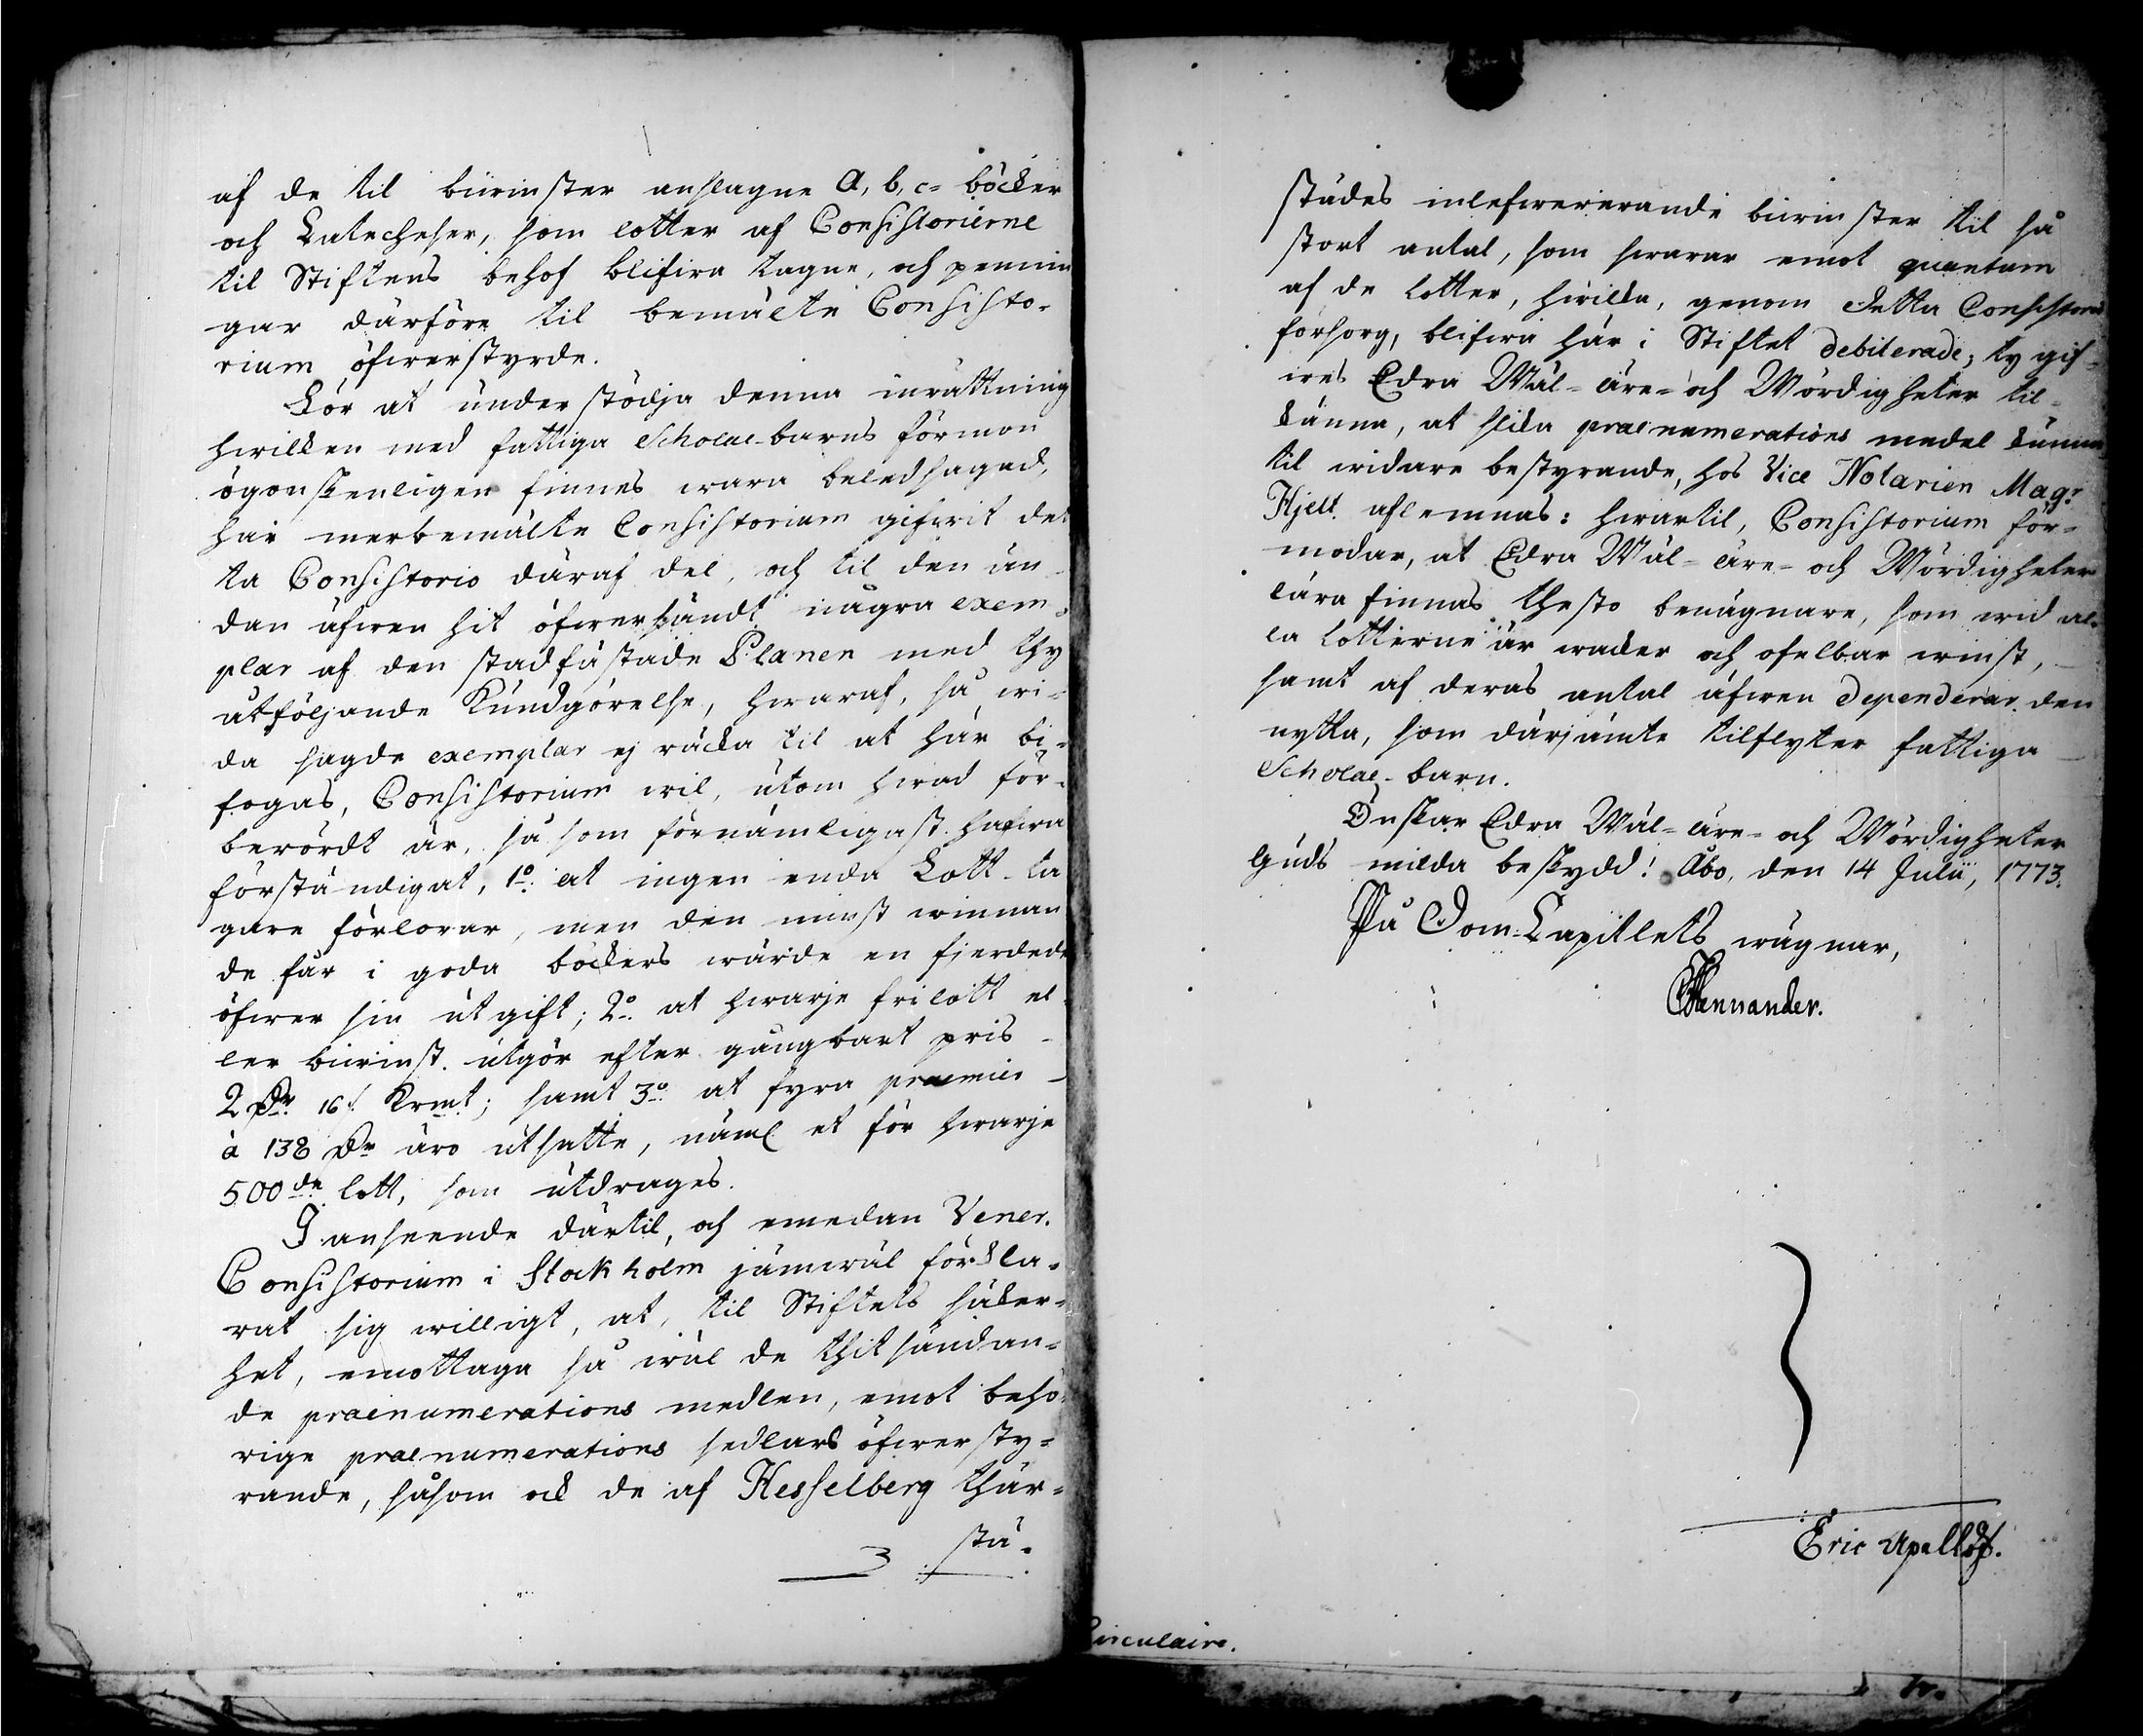 af de til biwinster anslagne A, b, c= böcker
och Catecheser, som lotter af Consistorierne
til Stiftens behof blifwa tagne, och pennin
gar därföre til bemälte Consisto-
rium öfwerstyrde.
För at understödja denna inrättning
hwilken med fattiga Scholae-barns förmon
ögonskenligen finnes wara beledsagad,
har merbemälte Consistorium gifwit det
ta Consistorio däraf del, och til den än-
dan äfwen hit öfwersändt några exem-
plar af den stadfästade Planen med thy
åtföljande Kundgörelse, hwaraf, så wi-
da sagde exemplar ej räcka til at här bi-
fogas, Consistorium wil, utom hwad för-
berördt är, så som förnämligast hafwa
förständigat, 1:o at ingen enda Lott-ta
gare förlorar, men den minst winnan
de får i goda böckers wärde en fjerdedel
öfwer sin utgift; 2:o at hwarje frilott el-
ler biwinst utgör efter gångbart pris
2 Dr 16 s. Krmt; samt 3:o at fyra praemier
à 138 Dr äro utsatte, näml et för hwarje
500de lott, som utdrages.
I anseende därtil, och emedan Vener.
Consistorium i Stockholm jämwäl förkla-
rat sig willigt, at, til Stiftets säker-
het, emottaga så wäl de thit sändan-
de praenumerations medlen, emot behö-
rige praenumerations sedlars öfwersty-
rande, såsom ock de af Hesselberg thär-
stä-
städes inlefwererande biwinster til så
stort antal, som swarar emot quantum
af de lotter, hwilka, genom detta Consistorii
försorg, blifwa här i Stiftet debiterade; ty gif-
wes Edra Wäl- äre- och Wördigheter til-
känna, at slika praenumerations medel kunna
til widare bestyrande, hos Vice Notarien Mag:r
Hjelt aflemnas: hwartil, Consistorium för-
modar, at Edra Wäl- äre- och Wördigheter
lära finnas thesto benägnare, som wid al-
la lotterne är wacker och ofelbar winst,
samt af deras antal äfwen dependerar den
nytta, som därjämte tilflyter fattiga
Scholae- barn.
Önskar Edra Wäl- äre- och Wördigheter
Guds milda beskydd! Åbo, den 14 Julii, 1773.
På Dom-Capitlets wägnar,
Mennander.
Eric Apellöf.
Circulaire.